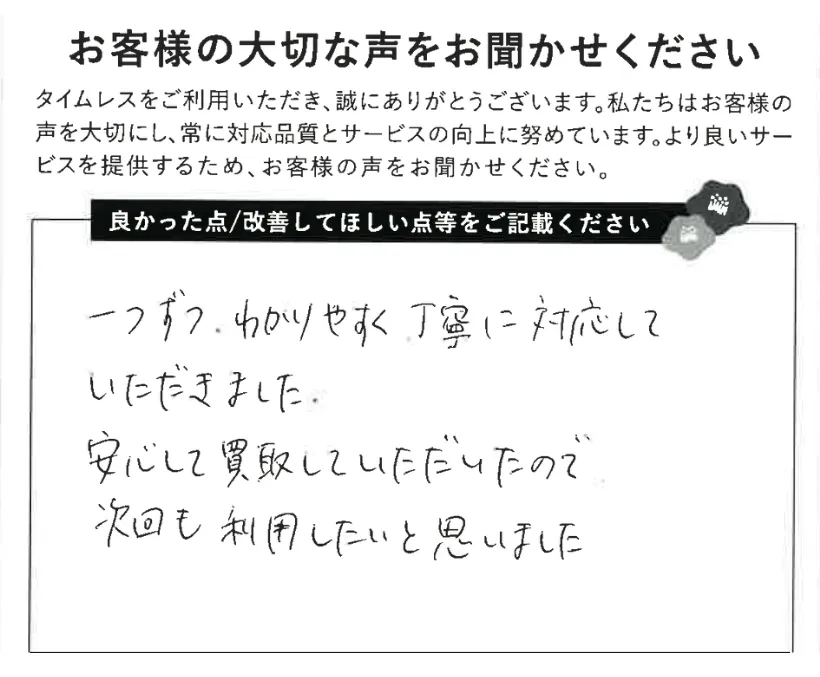 お客様の大切な声をお聞かせください
タイムレスをご利用いただき、誠にありがとうございます。私たちはお客様の
声を大切にし、常に対応品質とサービスの向上に努めています。より良いサー
ビスを提供するため、お客様の声をお聞かせください。
良かった点/改善してほしい点等をご記載ください
一つずつ、わかりやすく丁寧に対応して
いただきました。
安心して買取していただいたので
次回も利用したいと思いました